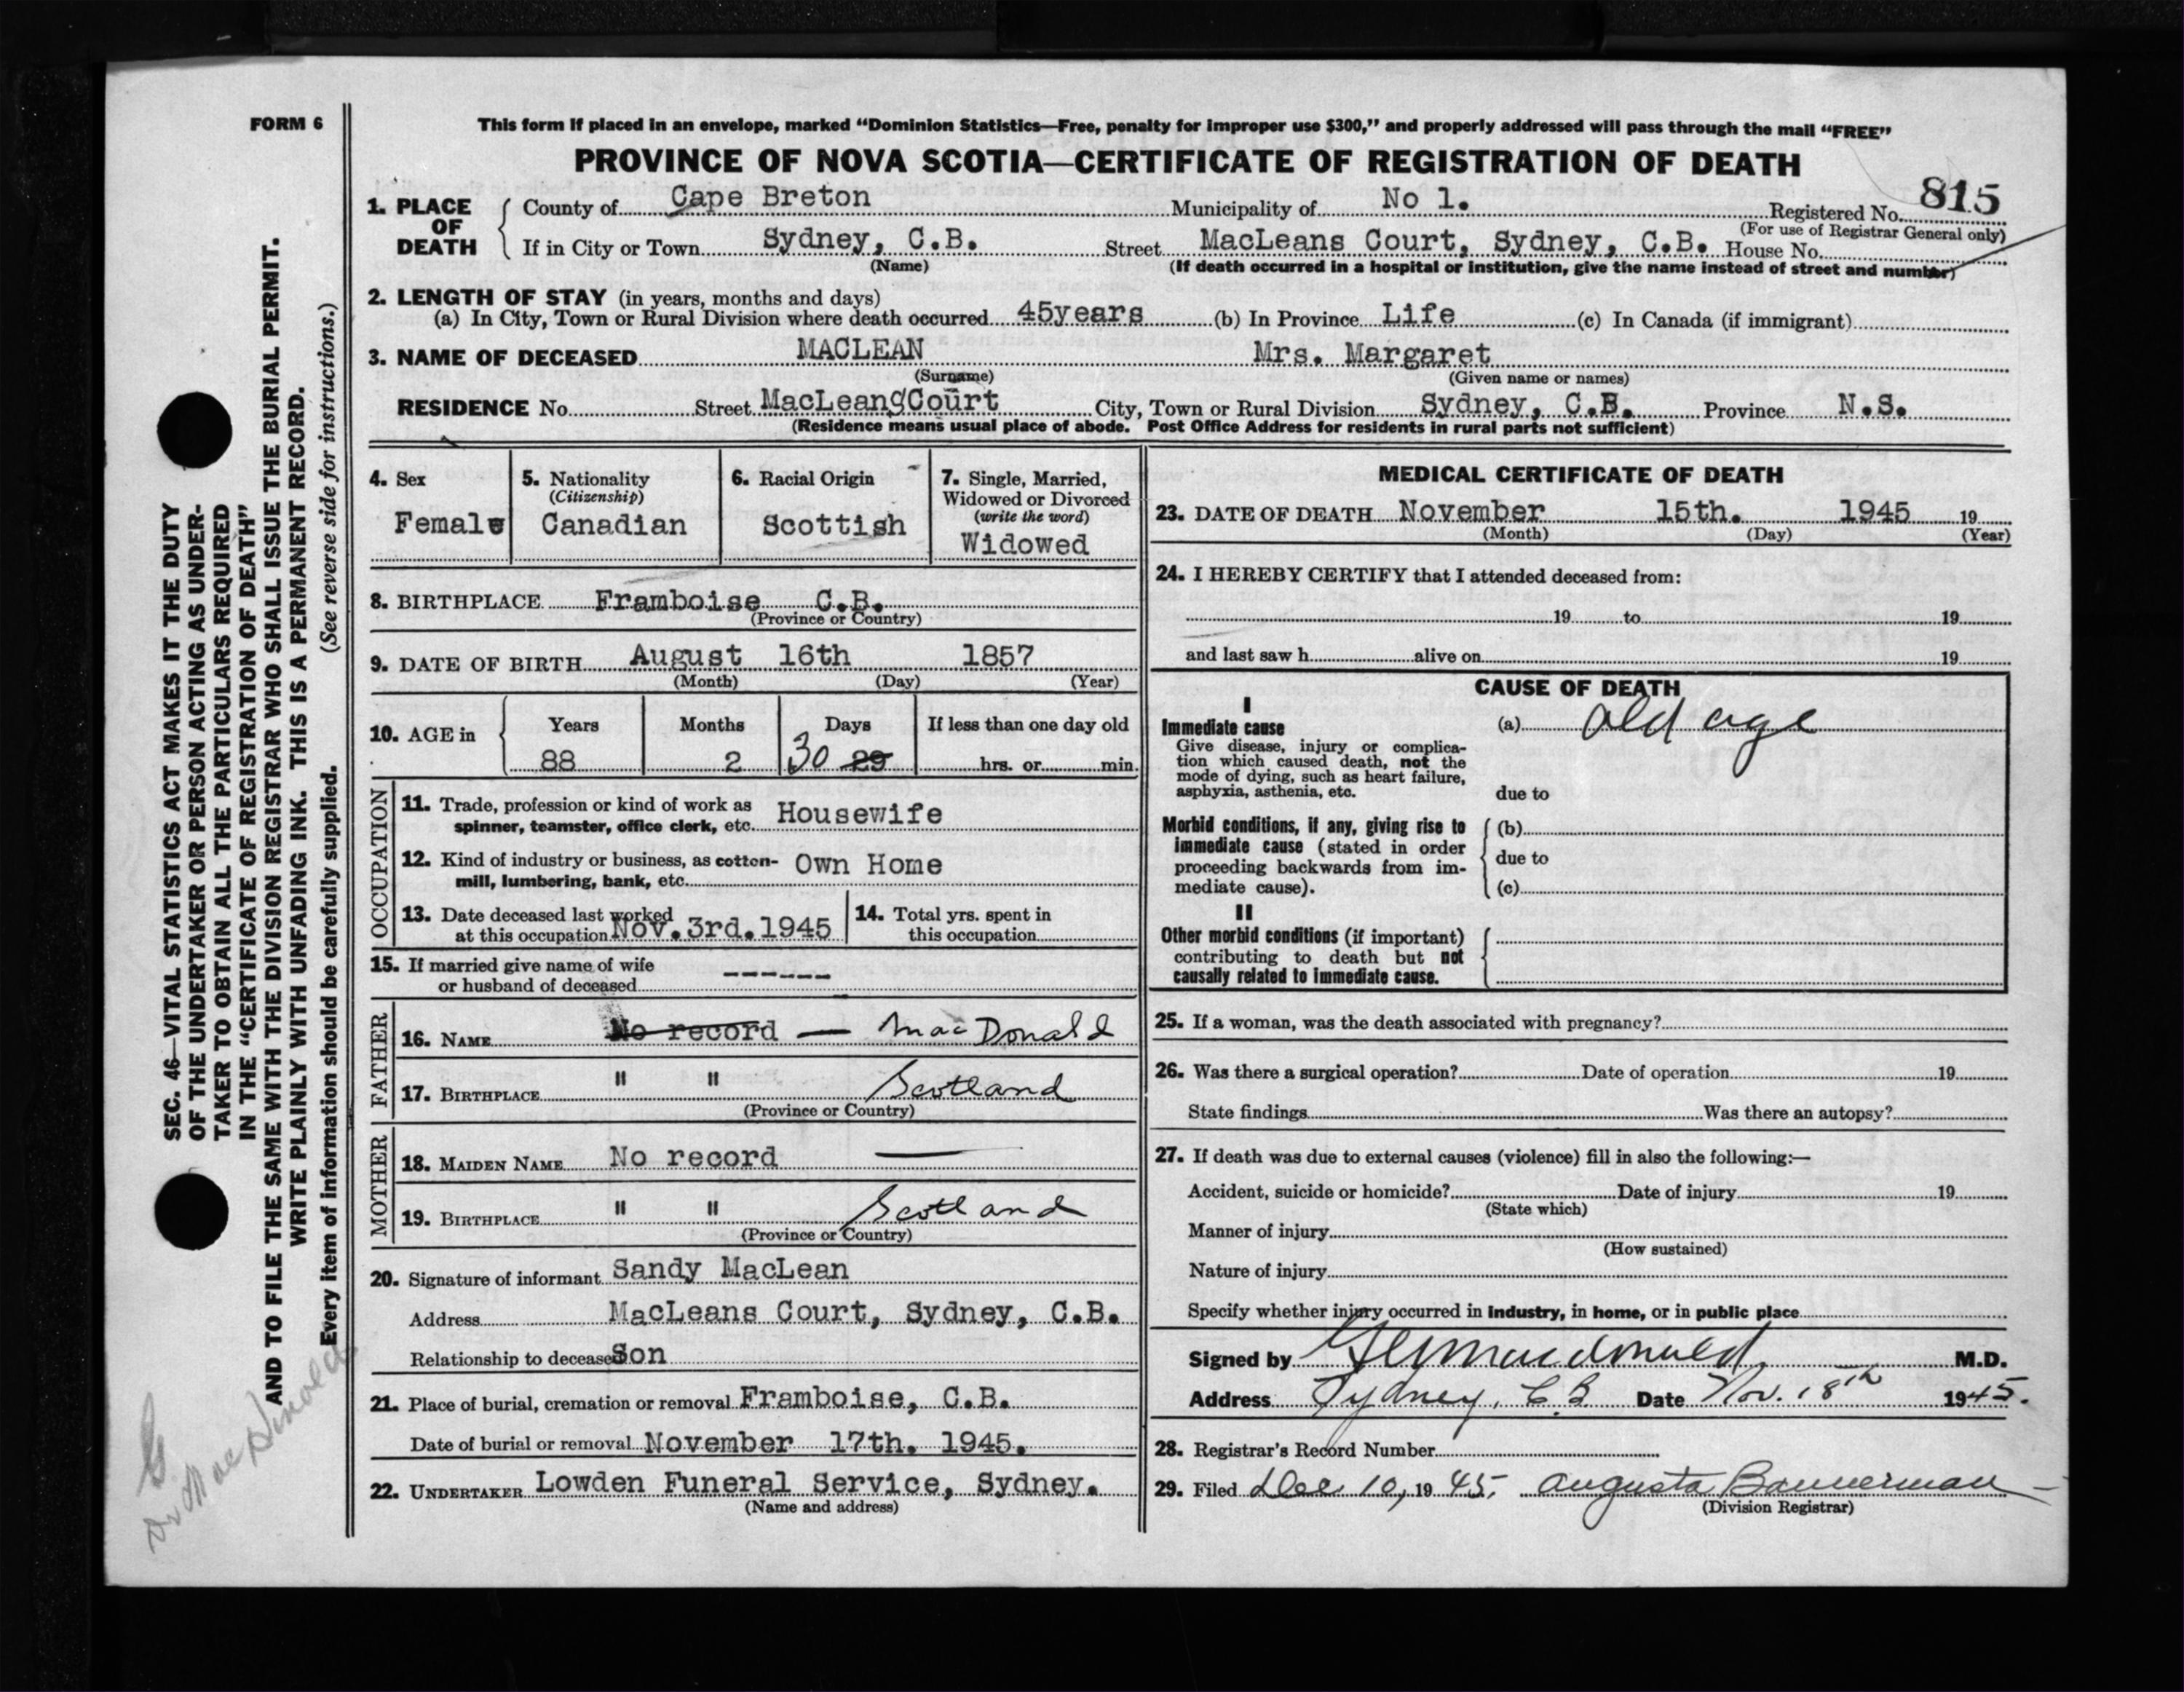 FORM 6
This form if placed in an envelope, marked "Dominion Statistics—Free, penalty for improper use $300," and properly addressed will pass through the mail "FREE"
PROVINCE OF NOVA SCOTIA—CERTIFICATE OF REGISTRATION OF DEATH
1. PLACE OF DEATH
County of Cape Breton Municipality of No 1. Registered No. 815
(For use of Registrar General only)
If in City or Town Sydney, C.B. Street MacLeans Court, Sydney, C.B. House No.
(Name) (If death occurred in a hospital or institution, give the name instead of street and number)
2. LENGTH OF STAY (in years, months and days)
(a) In City, Town or Rural Division where death occurred 45years (b) In Province Life (c) In Canada (if immigrant)
3. NAME OF DECEASED MACLEAN Mrs. Margaret
(Surname) (Given name or names)
RESIDENCE No. Street MacLeans Court City, Town or Rural Division Sydney, C.B. Province N.S.
(Residence means usual place of abode. Post Office Address for residents in rural parts not sufficient)
4. Sex
Female
5. Nationality
(Citizenship)
Canadian
6. Racial Origin
Scottish
7. Single, Married,
Widowed or Divorced
(write the word)
Widowed
8. BIRTHPLACE Framboise C.B.
(Province or Country)
9. DATE OF BIRTH August 16th 1857
(Month) (Day) (Year)
10. AGE in Years Months Days If less than one day old
88 2 30 29 hrs. or min.
OCCUPATION
11. Trade, profession or kind of work as
spinner, teamster, office clerk, etc. Housewife
12. Kind of industry or business, as cotton-
mill, lumbering, bank, etc. Own Home
13. Date deceased last worked
at this occupation Nov.3rd.1945
14. Total yrs. spent in
this occupation
15. If married give name of wife
or husband of deceased ------
FATHER
16. NAME No record — MacDonald
17. BIRTHPLACE " " Scotland
(Province or Country)
MOTHER
18. MAIDEN NAME No record —
19. BIRTHPLACE " " Scotland
(Province or Country)
20. Signature of informant Sandy MacLean
Address MacLeans Court, Sydney, C.B.
Relationship to deceased Son
21. Place of burial, cremation or removal Framboise, C.B.
Date of burial or removal November 17th. 1945.
22. UNDERTAKER Lowden Funeral Service, Sydney.
(Name and address)
MEDICAL CERTIFICATE OF DEATH
23. DATE OF DEATH November 15th. 1945 19
(Month) (Day) (Year)
24. I HEREBY CERTIFY that I attended deceased from:
19 to 19
and last saw h alive on 19
CAUSE OF DEATH
I
Immediate cause
Give disease, injury or complica-
tion which caused death, not the
mode of dying, such as heart failure,
asphyxia, asthenia, etc.
(a) old age
due to
Morbid conditions, if any, giving rise to
immediate cause (stated in order
proceeding backwards from im-
mediate cause).
(b)
due to
(c)
II
Other morbid conditions (if important)
contributing to death but not
causally related to immediate cause.
25. If a woman, was the death associated with pregnancy?
26. Was there a surgical operation? Date of operation 19
State findings Was there an autopsy?
27. If death was due to external causes (violence) fill in also the following:—
Accident, suicide or homicide? Date of injury 19
(State which)
Manner of injury
(How sustained)
Nature of injury
Specify whether injury occurred in industry, in home, or in public place
Signed by Macdonald M.D.
Address Sydney, C.B Date Nov. 18th 1945.
28. Registrar's Record Number
29. Filed Dec 10, 19 45. Augusta Bannerman
(Division Registrar)
SEC. 46—VITAL STATISTICS ACT MAKES IT THE DUTY
OF THE UNDERTAKER OR PERSON ACTING AS UNDER-
TAKER TO OBTAIN ALL THE PARTICULARS REQUIRED
IN THE "CERTIFICATE OF REGISTRATION OF DEATH"
AND TO FILE THE SAME WITH THE DIVISION REGISTRAR WHO SHALL ISSUE THE BURIAL PERMIT.
WRITE PLAINLY WITH UNFADING INK. THIS IS A PERMANENT RECORD.
Every item of information should be carefully supplied. (See reverse side for instructions.)